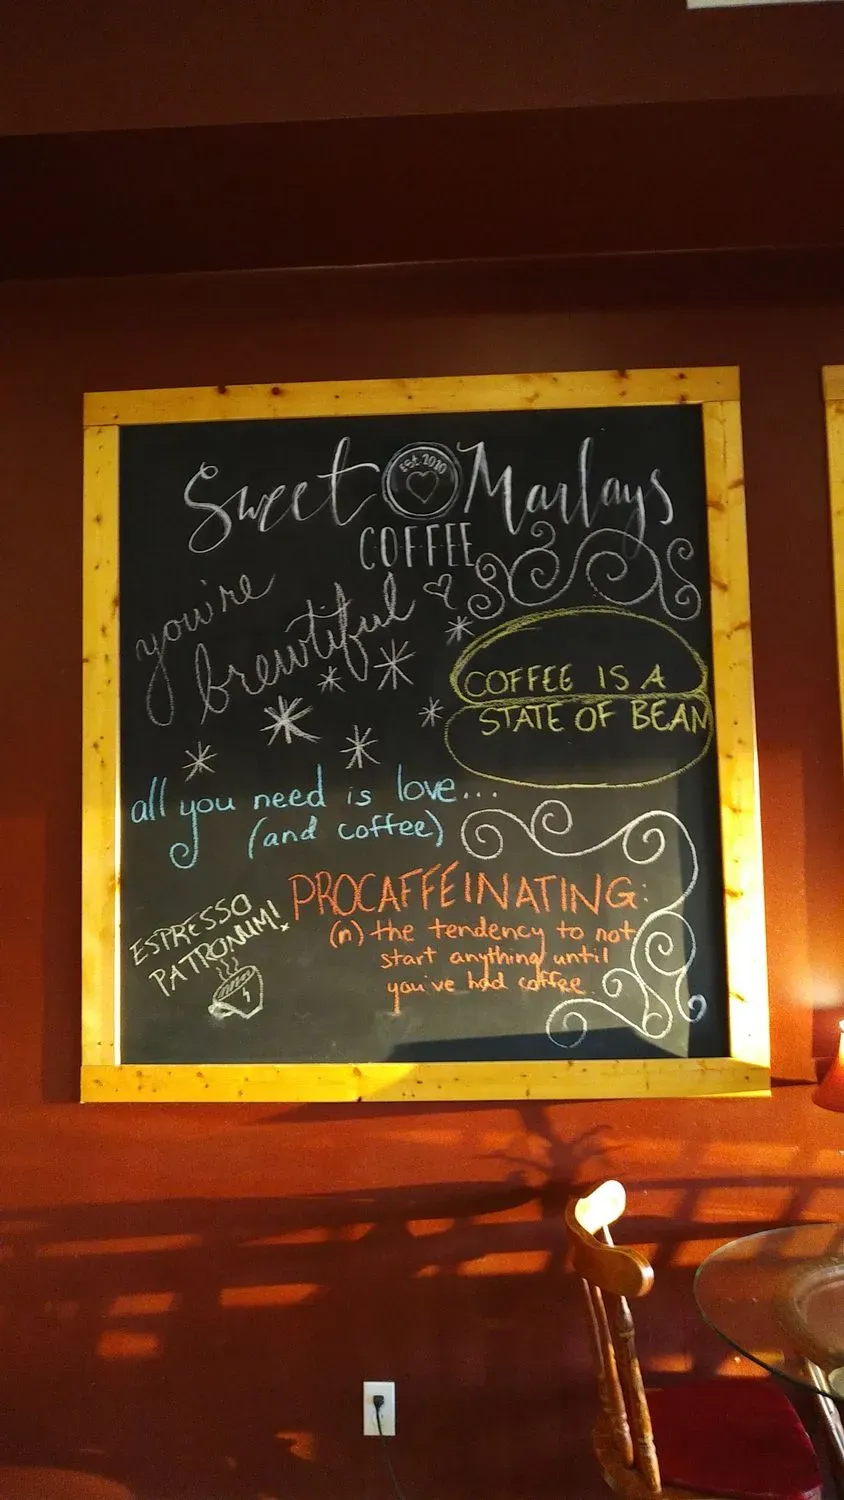 Sweet Marlays
Est. 2010
COFFEE
you're
brewtiful
COFFEE IS A
STATE OF BEAN
all you need is love...
(and coffee)
ESPRESSO
PATRONUM!
PROCAFFEINATING:
(n) the tendency to not
start anything until
you've had coffee